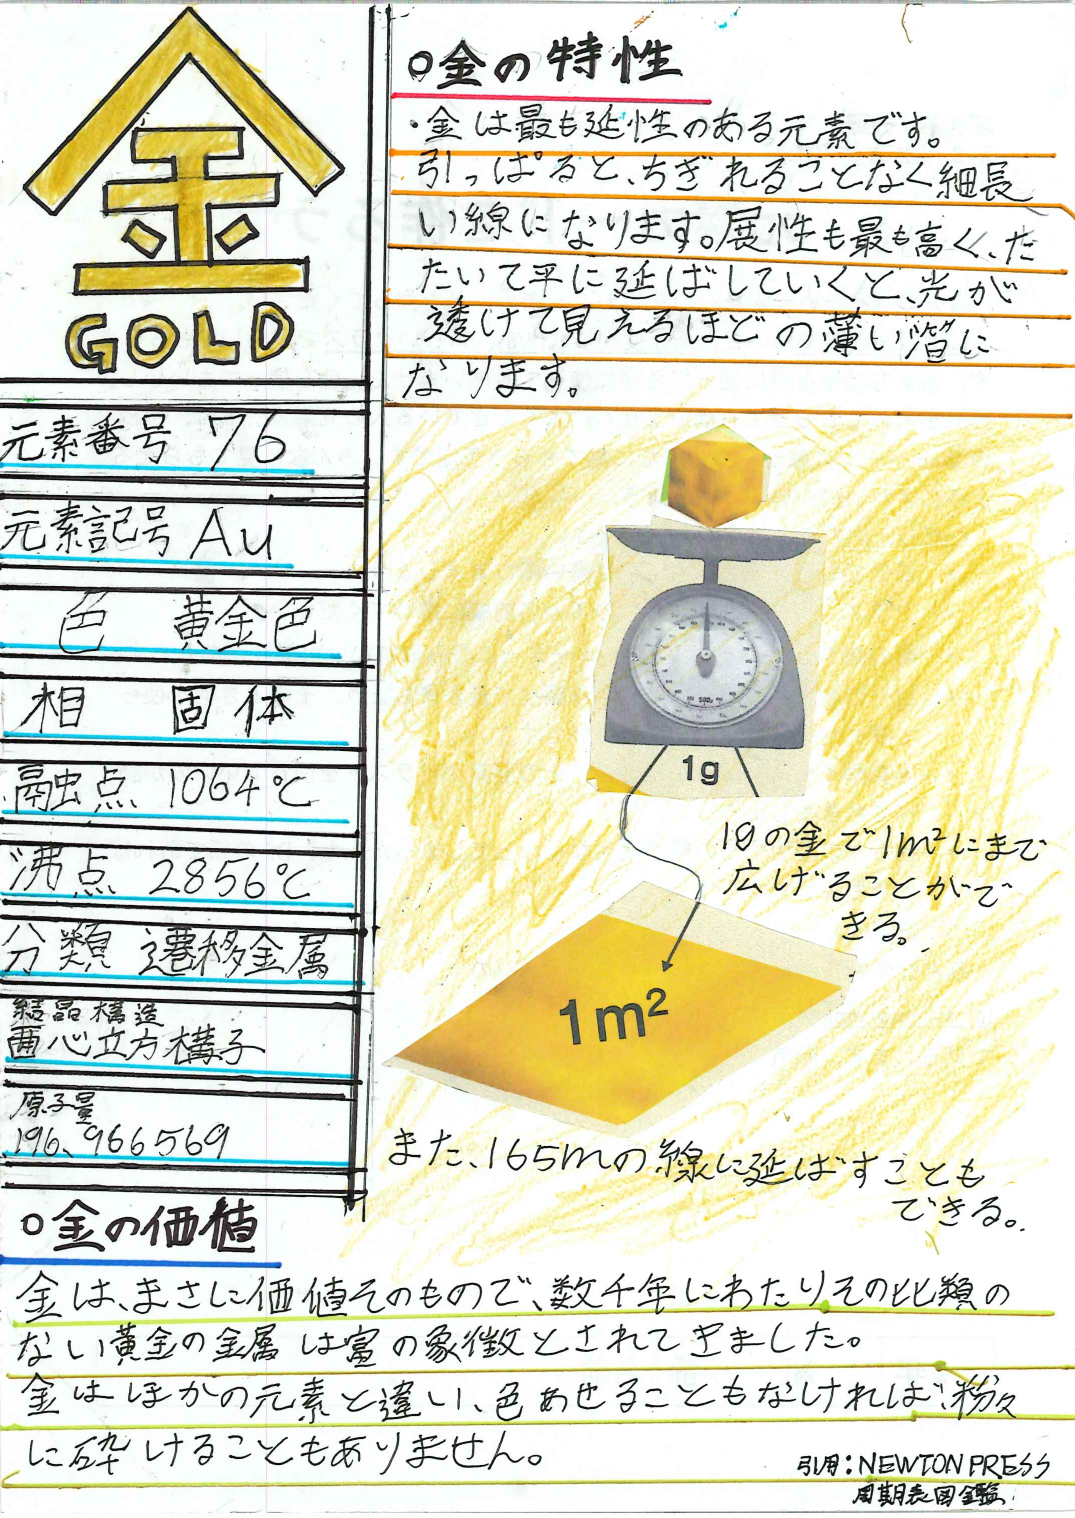 金
GOLD
元素番号 76
元素記号 Au
色 黄金色
相 固体
融点 1064℃
沸点 2856℃
分類 遷移金属
結晶構造
面心立方構子
原子量
196、966569
○金の特性
・金は最も延性のある元素です。
引っぱると、ちぎれることなく細長
い線になります。展性も最も高く、た
たいて平に延ばしていくと、光が
透けて見えるほどの薄い箔に
なります。
1g
1gの金で1m²にまで
広げることがで
きる。
1m²
また、165mの線に延ばすことも
できる。
○金の価値
金は、まさに価値そのもので、数千年にわたりその比類の
ない黄金の金属は富の象徴とされてきました。
金はほかの元素と違い、色あせることもなければ、粉々
に砕けることもありません。
引用：NEWTON PRESS
周期表図鑑